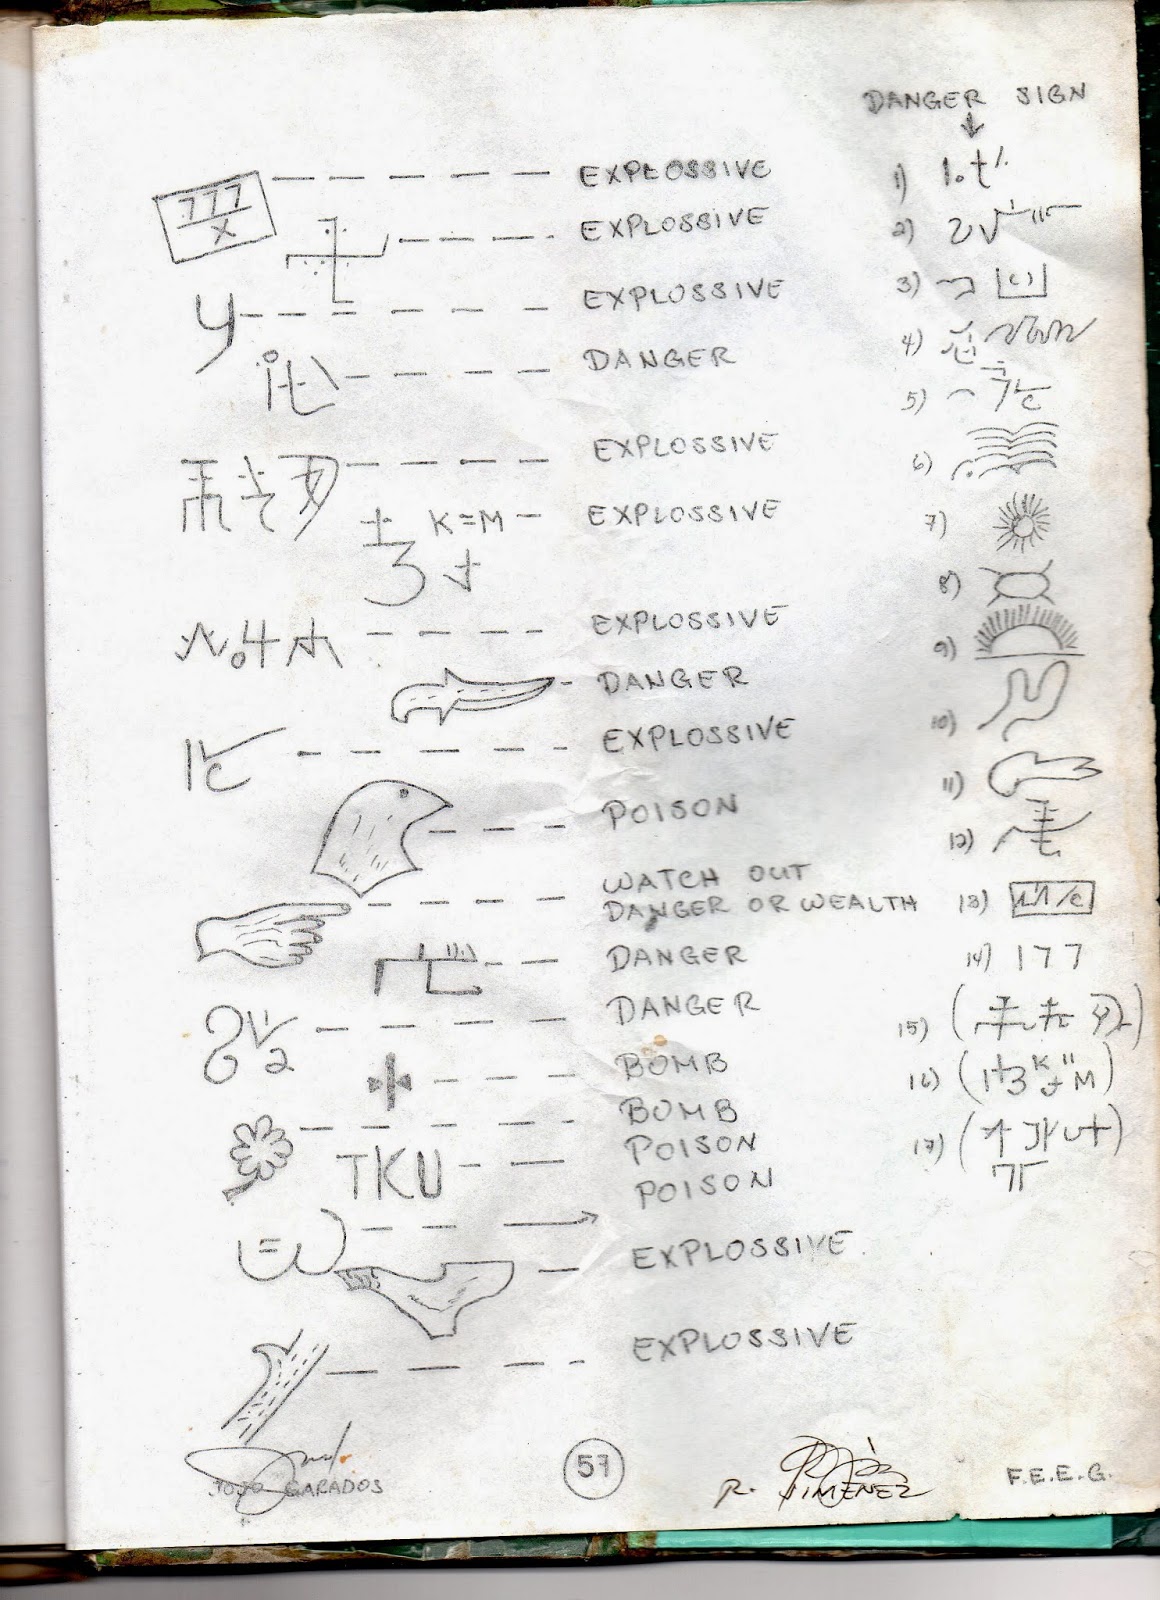 DANGER SIGN
777
X
EXPLOSSIVE
EXPLOSSIVE
EXPLOSSIVE
DANGER
EXPLOSSIVE
K=M
EXPLOSSIVE
EXPLOSSIVE
DANGER
EXPLOSSIVE
POISON
WATCH OUT
DANGER OR WEALTH
DANGER
DANGER
BOMB
BOMB
TKU
POISON
POISON
EXPLOSSIVE
EXPLOSSIVE
1)
2)
3)
4)
5)
6)
7)
8)
9)
10)
11)
12)
13)
14) 177
15)
16)
17)
JOJO GARADOS
57
R. JIMENEZ
F.E.E.G.